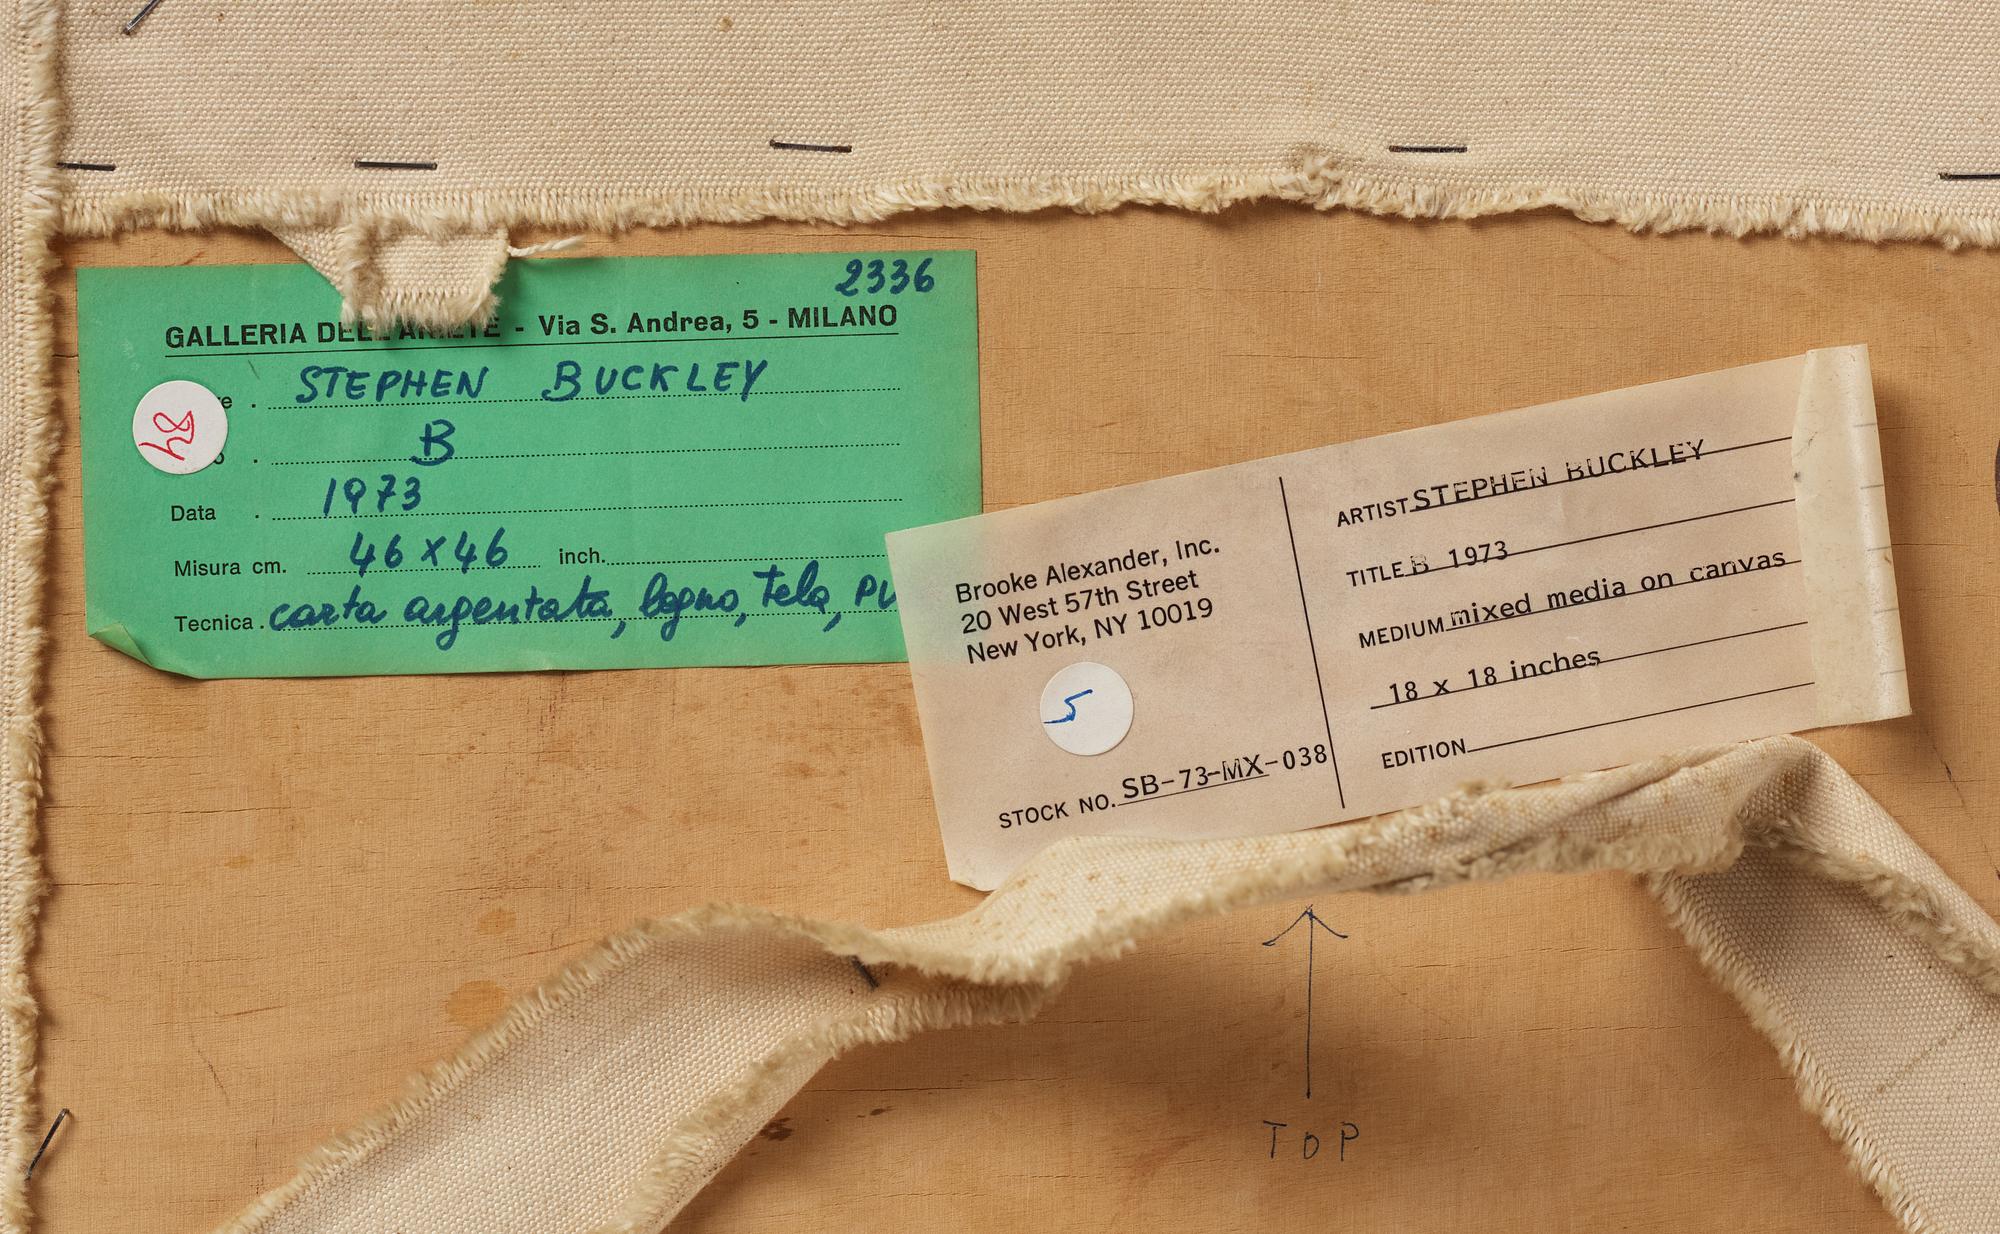 2336
GALLERIA DELL'ARIETE - Via S. Andrea, 5 - MILANO
STEPHEN BUCKLEY
B
Data . 1973
Misura cm. 46 x 46 inch.
Tecnica . carta argentata, legno, tela,
Brooke Alexander, Inc.
20 West 57th Street
New York, NY 10019
5
STOCK NO. SB-73-MX-038
ARTIST STEPHEN BUCKLEY
TITLE B 1973
MEDIUM mixed media on canvas
18 x 18 inches
EDITION
TOP